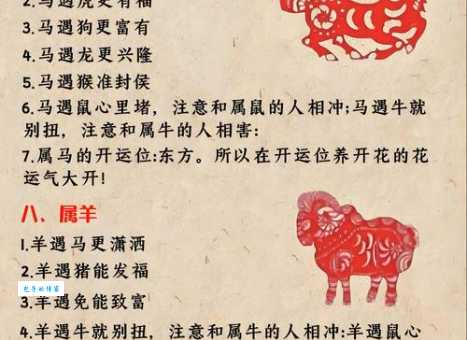 2.马遇虎更有福
3.马遇狗更富有
4.马遇龙更兴隆
5.马遇猴准封侯
6.马遇鼠心里堵，注意和属鼠的人相冲;马遇牛就
别扭，注意和属牛的人相害:
7.属马的开运位:东方。所以在开运位养开花的花
运气大开!
八、属羊
1.羊遇马更潇洒
2.羊遇猪能发福
3.羊遇兔能致富
4.羊遇牛就别扭，注意和属牛的人相冲:羊遇鼠心